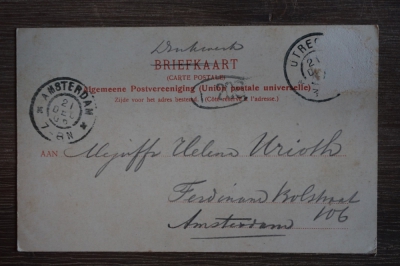 Drukwerk
BRIEFKAART
(CARTE POSTALE)
Algemeene Postvereeniging (Union postale universelle)
Zijde voor het adres bestemd. (Côté réservé à l'adresse.)
UTRE
21
AMSTERDAM
21
DEC
7-8N
AAN Mejuffr Helena Urioth
Ferdinand Bolstraat
106
Amsterdam